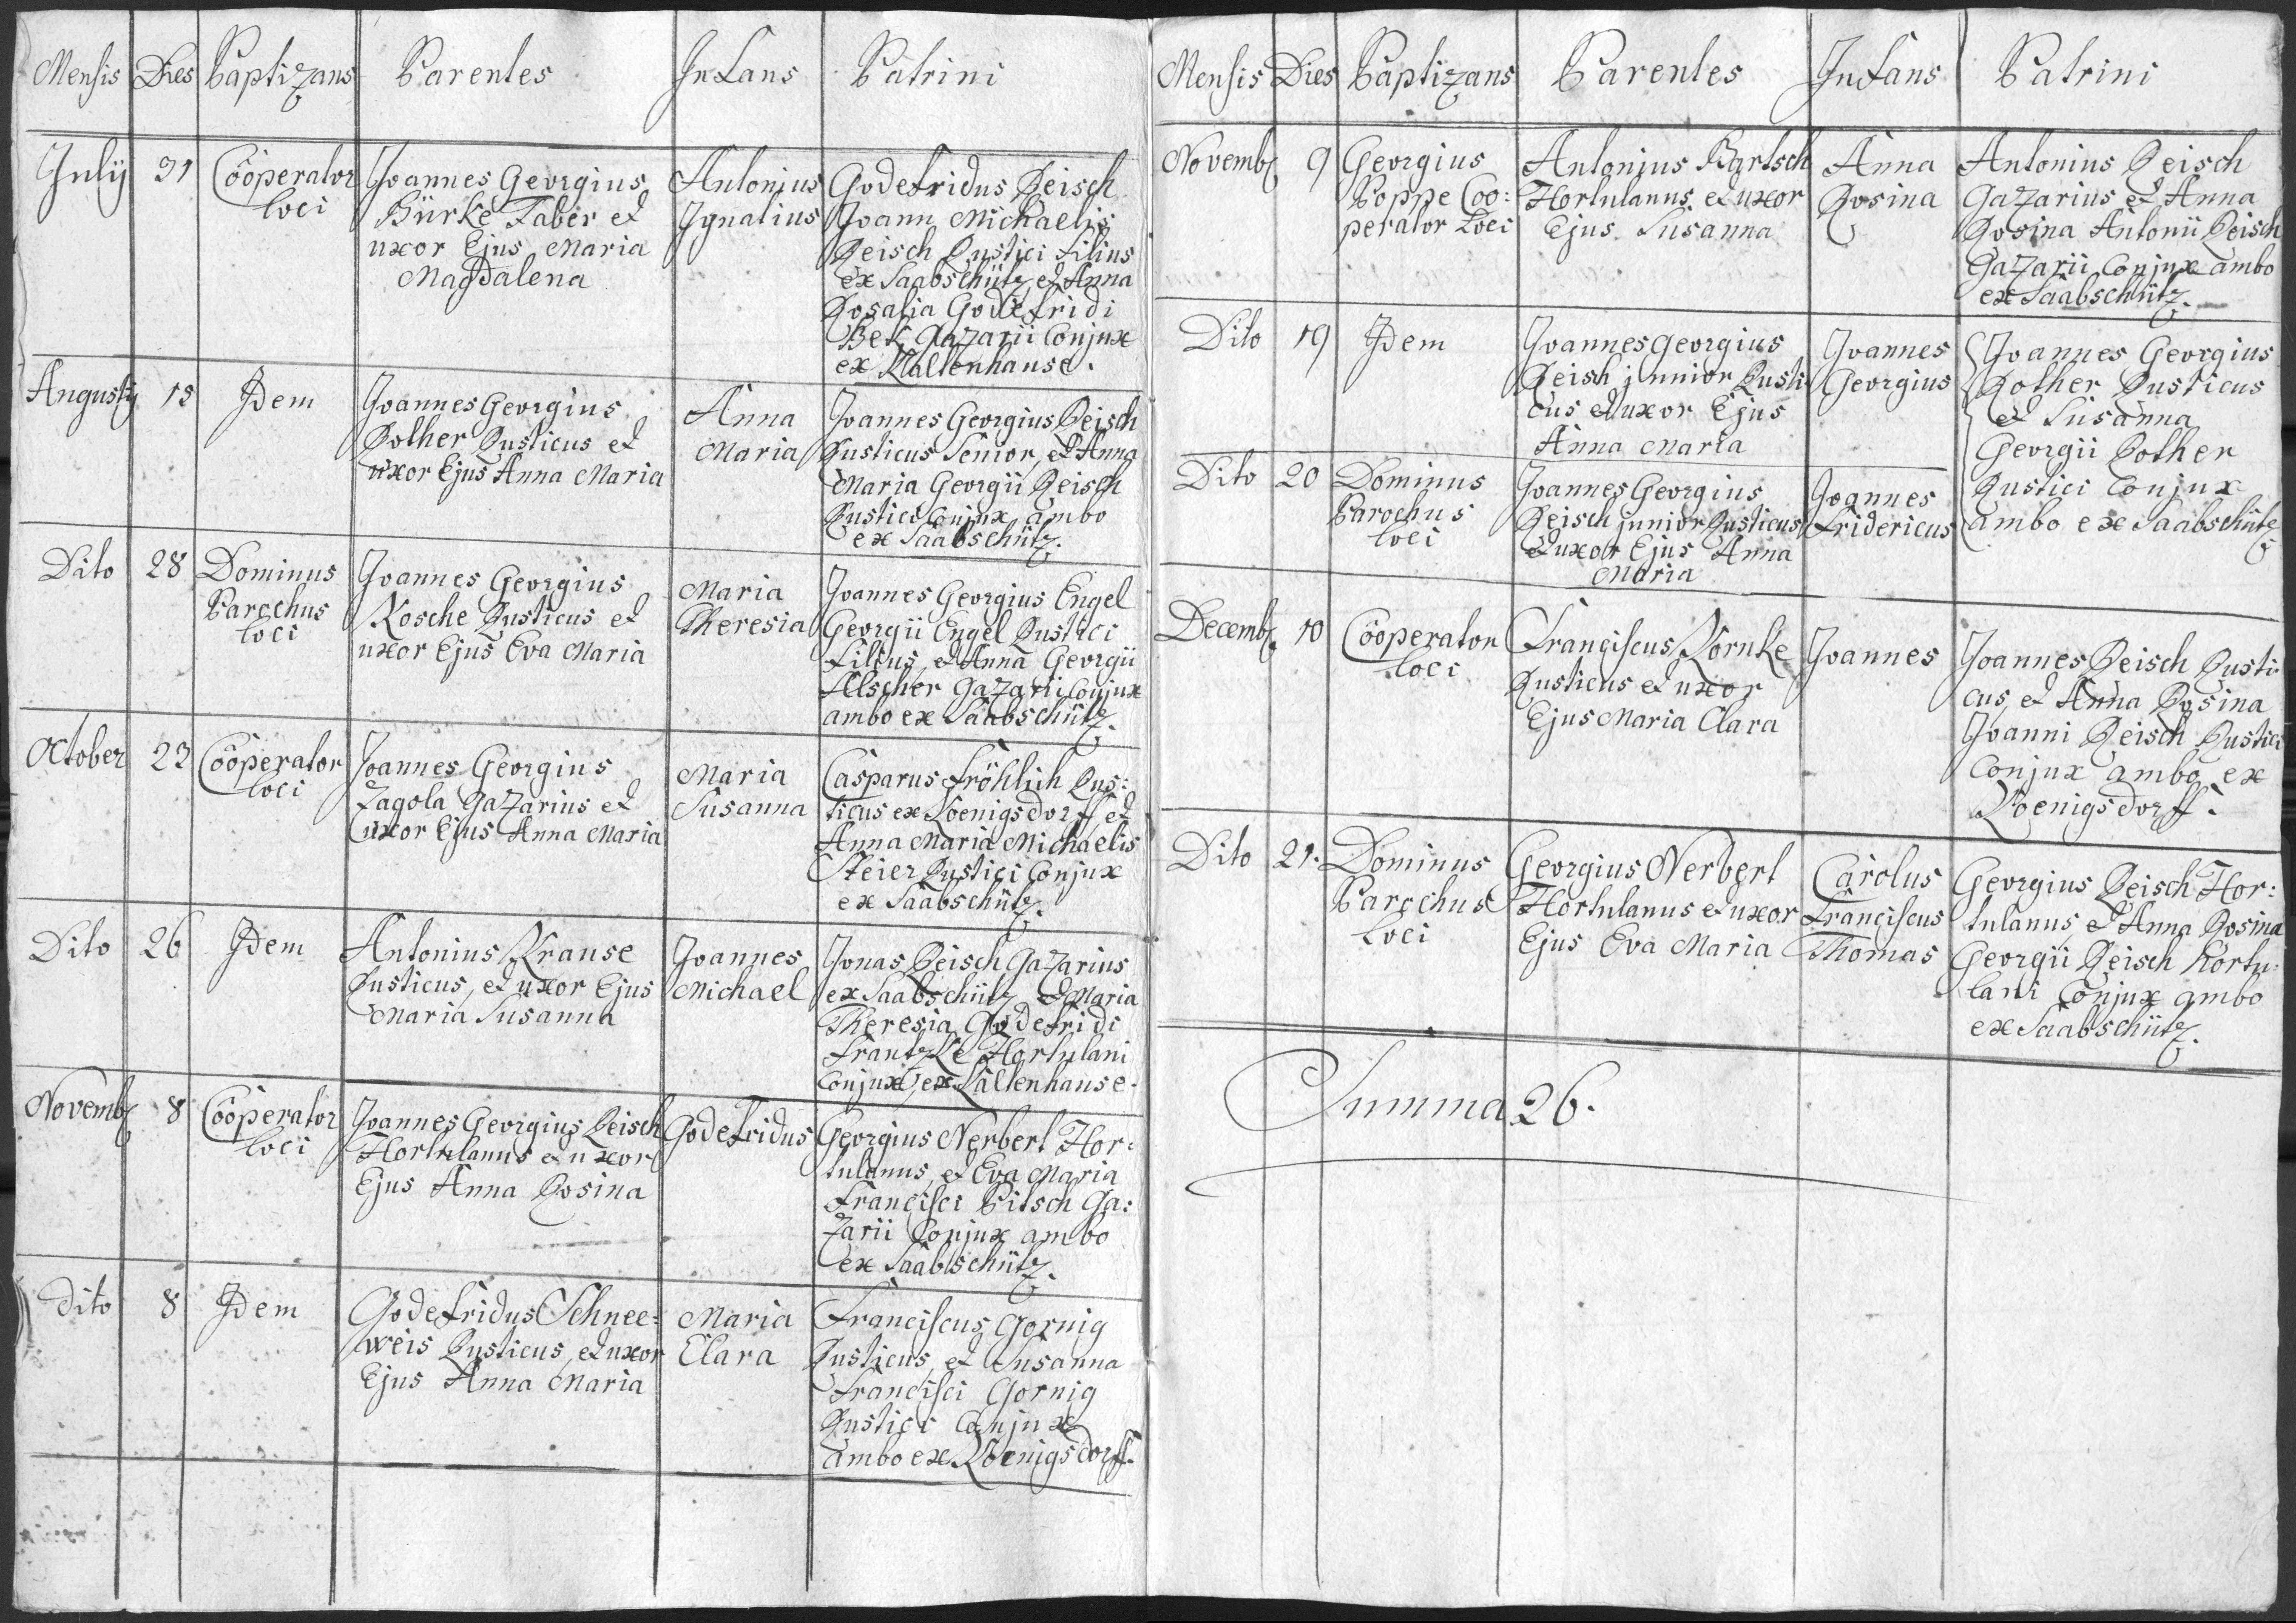 Mensis Dies Baptizans Parentes Infans Patrini
Julij 31 Cooperator loci
Joannes Georgius
Bürke Faber et
uxor Ejus Maria
Magdalena
Antonius
Ignatius
Godefridus Reisch
Joann Michaelis
Reisch Rustici Filius
ex Saabschütz, et Anna
Rosalia Godefridi
Bek Gazarii Conjux
ex Kaltenhause.
Augustij 15 Idem
Joannes Georgius
Rother Rusticus et
uxor Ejus Anna Maria
Anna
Maria
Joannes Georgius Reisch
Rusticus Senior, et Anna
Maria Georgii Reisch
Rustici Conjux ambo
ex Saabschütz.
Dito 28 Dominus
Parochus
loci
Joannes Georgius
Kosche Rusticus et
uxor Ejus Eva Maria
Maria
Theresia
Joannes Georgius Engel
Georgii Engel Rustici
Filius, et Anna Georgii
Alscher Gazarii Conjux
ambo ex Saabschütz.
October 23 Cooperator
loci
Joannes Georgius
Zagola Gazarius et
uxor Ejus Anna Maria
Maria
Susanna
Casparus Fröhlich Rus:
ticus ex Koenigsdorff et
Anna Maria Michaelis
Steier Rustici Conjux
ex Saabschütz.
Dito 26 Idem
Antonius Krause
Rusticus, et uxor Ejus
Maria Susanna
Joannes
Michael
Jonas Reisch Gazarius
ex Saabschütz et Maria
Theresia Godefridi
Frantzke Hortulani
Conjux, ex Kaltenhause.
Novemb. 8 Cooperator
loci
Joannes Georgius Reisch
Hortulanus et uxor
Ejus Anna Rosina
Godefridus
Georgius Nerbert Hor:
tulanus, et Eva Maria
Francisci Pitsch Ga:
zarii Conjux ambo
ex Saabschütz.
Dito 8 Idem
Godefridus Schnee=
weis Rusticus, et uxor
Ejus Anna Maria
Maria
Clara
Franciscus Gornig
Rusticus, et Susanna
Francisci Gornig
Rustici Conjux
ambo ex Koenigsdorff.
Mensis Dies Baptizans Parentes Infans Patrini
Novemb. 9 Georgius
Poppe Coo:
perator Loci
Antonius Bartsch
Hortulanus, et uxor
Ejus Susanna
Anna
Rosina
Antonius Reisch
Gazarius et Anna
Rosina Antonii Reisch
Gazarii Conjux ambo
ex Saabschütz.
Dito 19 Idem
Joannes Georgius
Reish junior Rusti
cus et uxor Ejus
Anna Maria
Joannes
Georgius
Joannes Georgius
Rother Rusticus
et Susanna
Georgii Rother
Rustici Conjux
ambo ex Saabschütz
Dito 20 Dominus
Parochus
loci
Joannes Georgius
Reisch junior Rusticus
et uxor Ejus Anna
Maria
Joannes
Fridericus
Decemb. 10 Cooperator
loci
Franciscus Kornke
Rusticus et uxor
Ejus Maria Clara
Joannes
Joannes Reisch Rusti
cus, et Anna Rosina
Joanni Reisch Rustici
Conjux ambo ex
Koenigsdorff.
Dito 21. Dominus
Parochus
loci
Georgius Nerbert
Hortulanus et uxor
Ejus Eva Maria
Carolus
Franciscus
Thomas
Georgius Reisch Hor:
tulanus et Anna Rosina
Georgii Reisch hortu:
lani Conjux ambo
ex Saabschütz.
Summa 26.